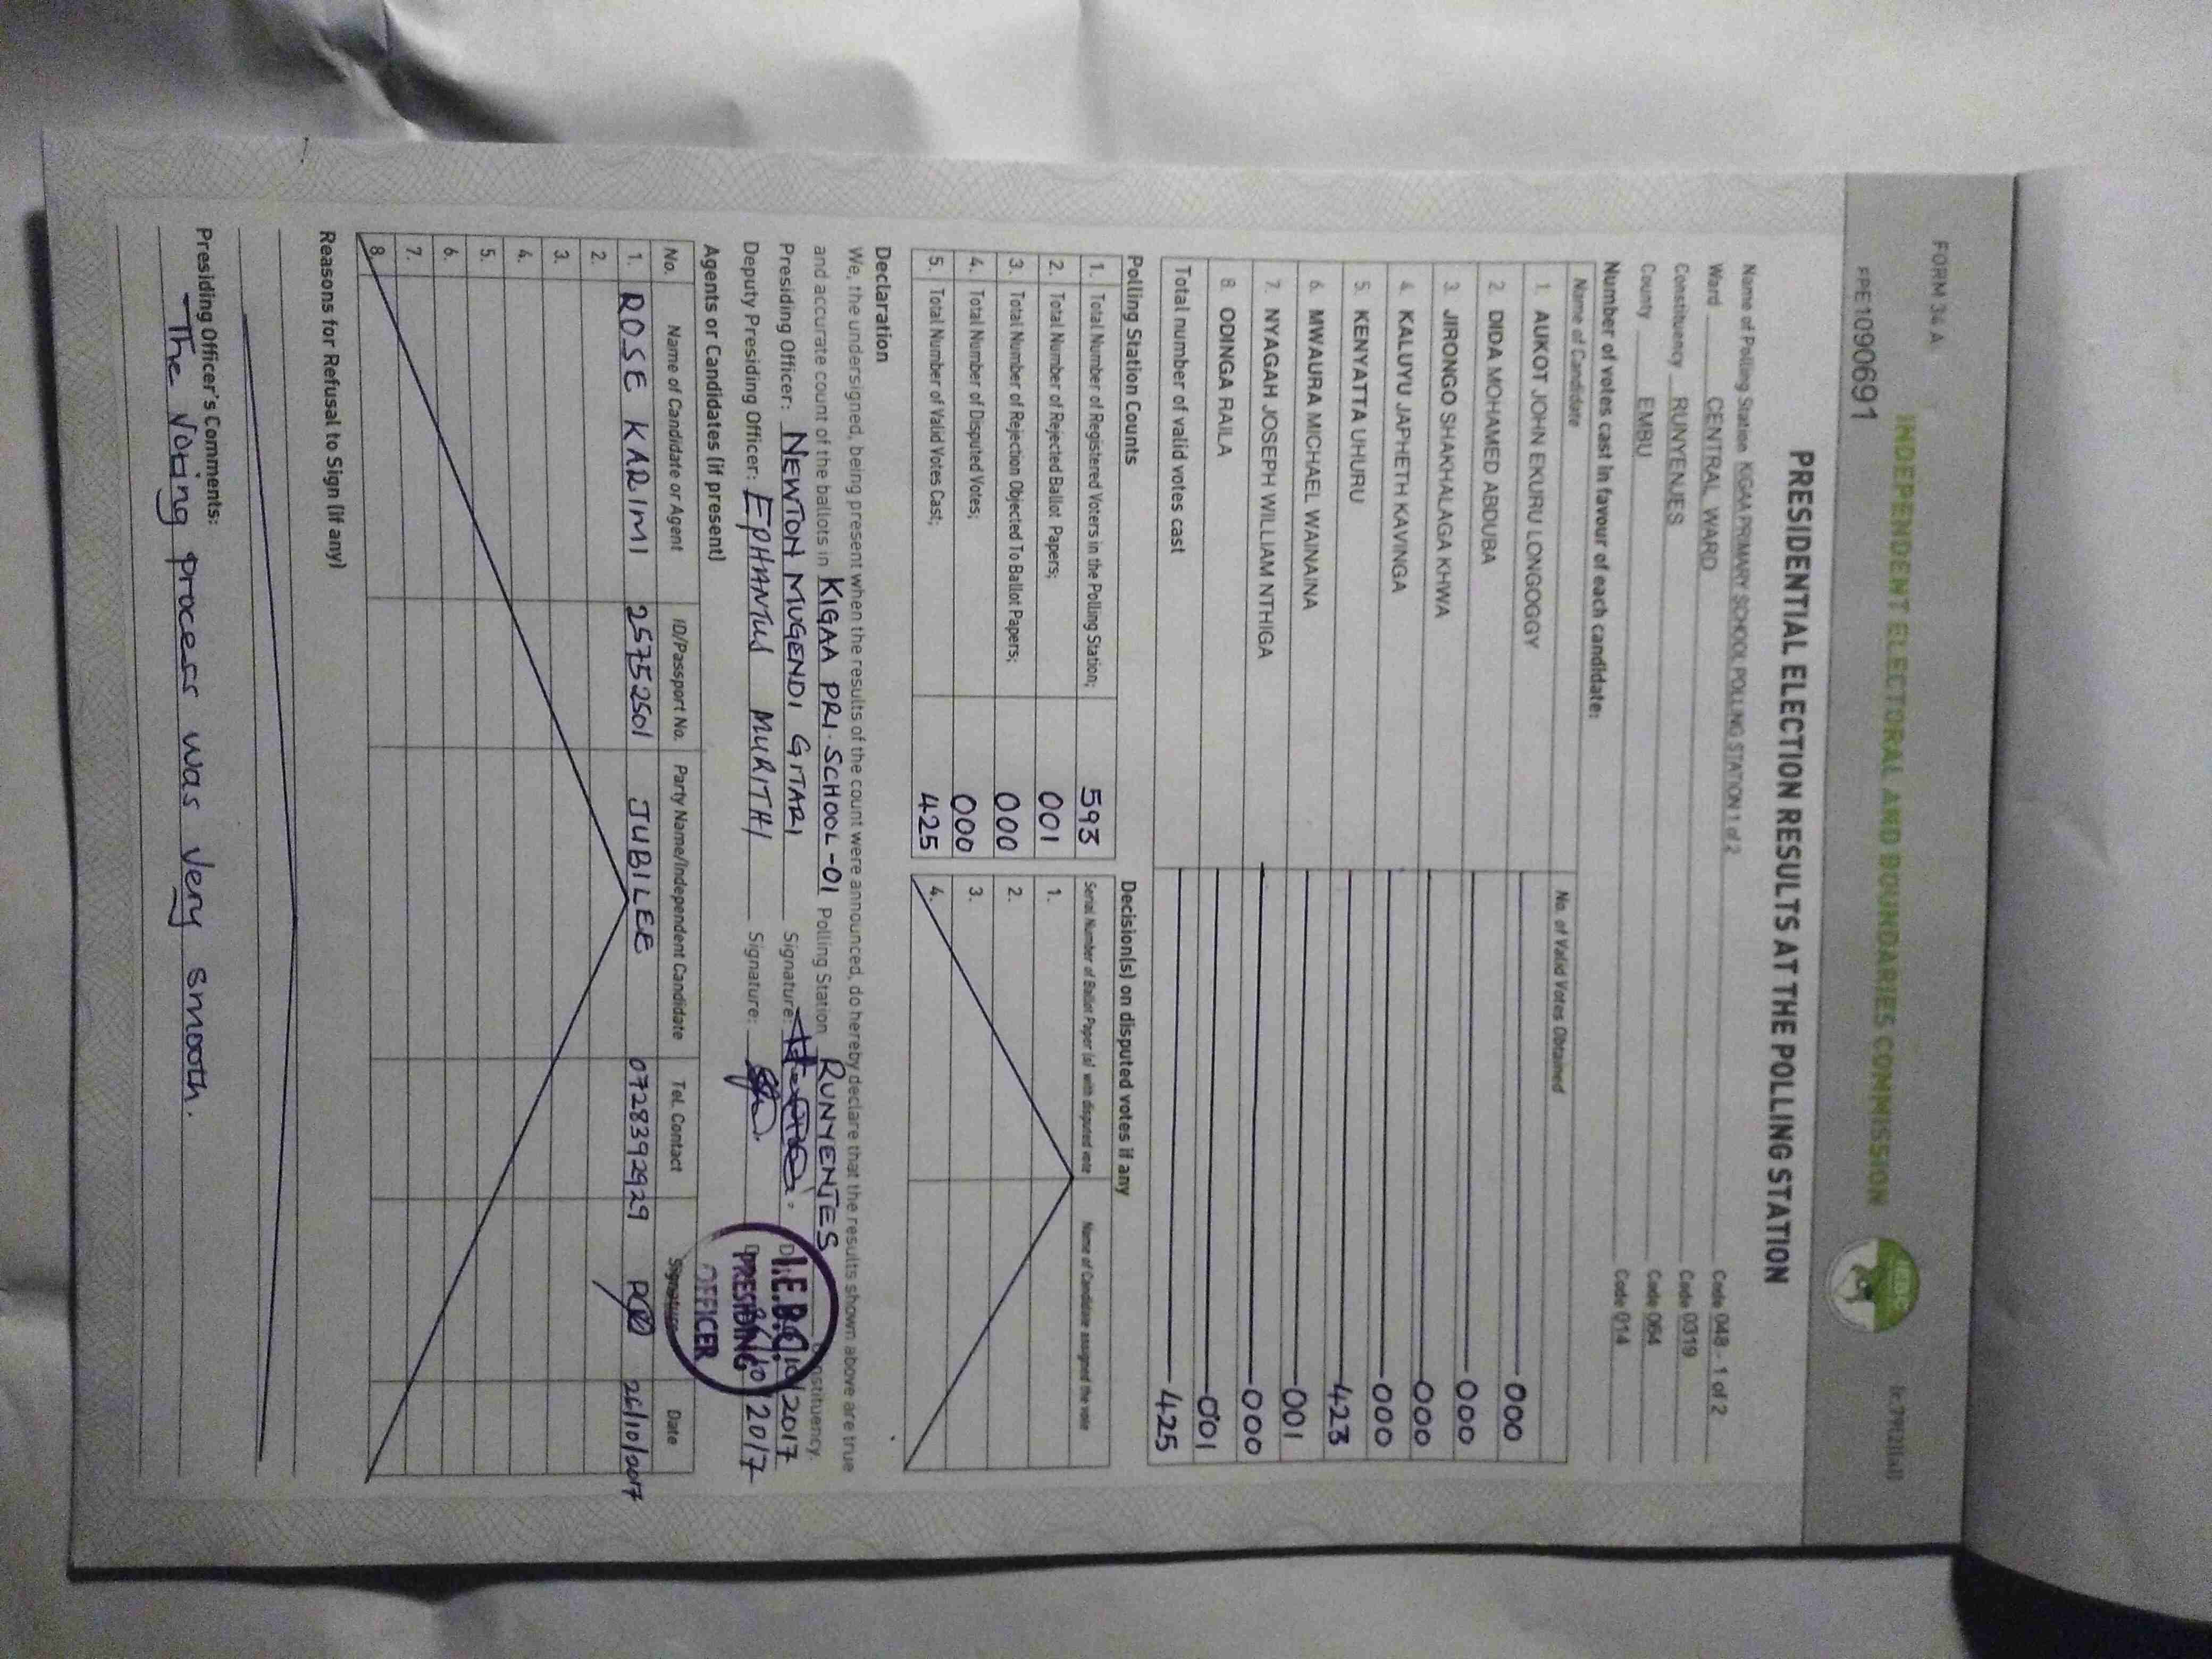 FORM 34 A
FPE1090691
INDEPENDENT ELECTORAL AND BOUNDARIES COMMISSION
IEBC
PRESIDENTIAL ELECTION RESULTS AT THE POLLING STATION
Name of Polling Station KIGAA PRIMARY SCHOOL POLLING STATION 1 of 2 Code 048 - 1 of 2
Ward CENTRAL WARD Code 0319
Constituency RUNYENJES Code 064
County EMBU Code 014
Number of votes cast in favour of each candidate:
Name of Candidate No. of Valid Votes Obtained
1. AUKOT JOHN EKURU LONGOGGY 000
2. DIDA MOHAMED ABDUBA 000
3. JIRONGO SHAKHALAGA KHWA 000
4. KALUYU JAPHETH KAVINGA 000
5. KENYATTA UHURU 423
6. MWAURA MICHAEL WAINAINA 001
7. NYAGAH JOSEPH WILLIAM NTHIGA 000
8. ODINGA RAILA 001
Total number of valid votes cast 425
Polling Station Counts
1. Total Number of Registered Voters in the Polling Station; 593
2. Total Number of Rejected Ballot Papers; 001
3. Total Number of Rejection Objected To Ballot Papers; 000
4. Total Number of Disputed Votes; 000
5. Total Number of Valid Votes Cast; 425
Decision(s) on disputed votes if any
Serial Number of Ballot Paper (s) with disputed vote Name of Candidate assigned the vote
1.
2.
3.
4.
Declaration
We, the undersigned, being present when the results of the count were announced, do hereby declare that the results shown above are true
and accurate count of the ballots in KIGAA PRI. SCHOOL -01 Polling Station RUNYENJES Constituency.
Presiding Officer: NEWTON MUGENDI GITARI Signature: /2017
Deputy Presiding Officer: EPHANTUS MURITHI Signature: /2017
I.E.B.C.
PRESIDING
OFFICER
Agents or Candidates (if present)
No. Name of Candidate or Agent ID/Passport No. Party Name/Independent Candidate Tel. Contact Signature Date
1. ROSE KARIMI 25752501 JUBILEE 0728392929 26/10/2017
2.
3.
4.
5.
6.
7.
8.
Reasons for Refusal to Sign (if any)
Presiding Officer's Comments:
The voting process was very smooth.